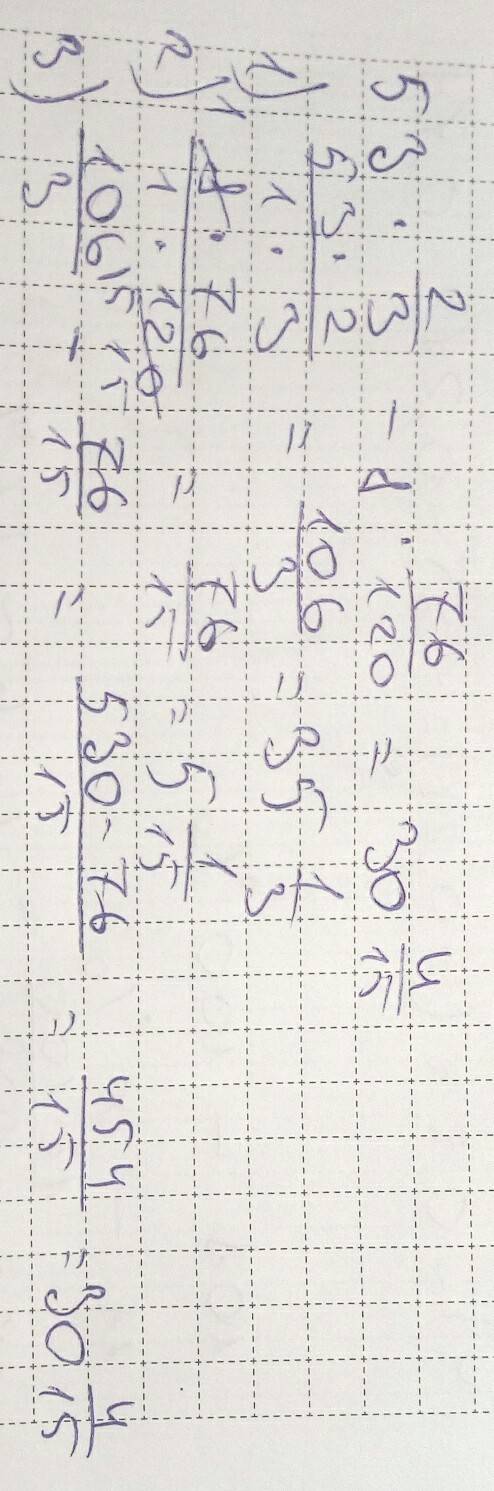 53 · 2/3 - 8 · 76/120 = 30 4/15
1) 53 · 2 / 1 · 3 = 106/3 = 35 1/3
2) 1 8 · 76 / 1 · 120 15 = 76/15 = 5 1/15
3) 106 5/3 - 76/15 = 530 - 76/15 = 454/15 = 30 4/15